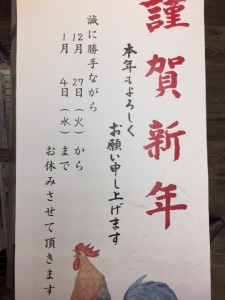 謹賀新年
本年もよろしく
お願い申し上げます
誠に勝手ながら
12月27日(火)から
1月4日(水)まで
お休みさせて頂きます